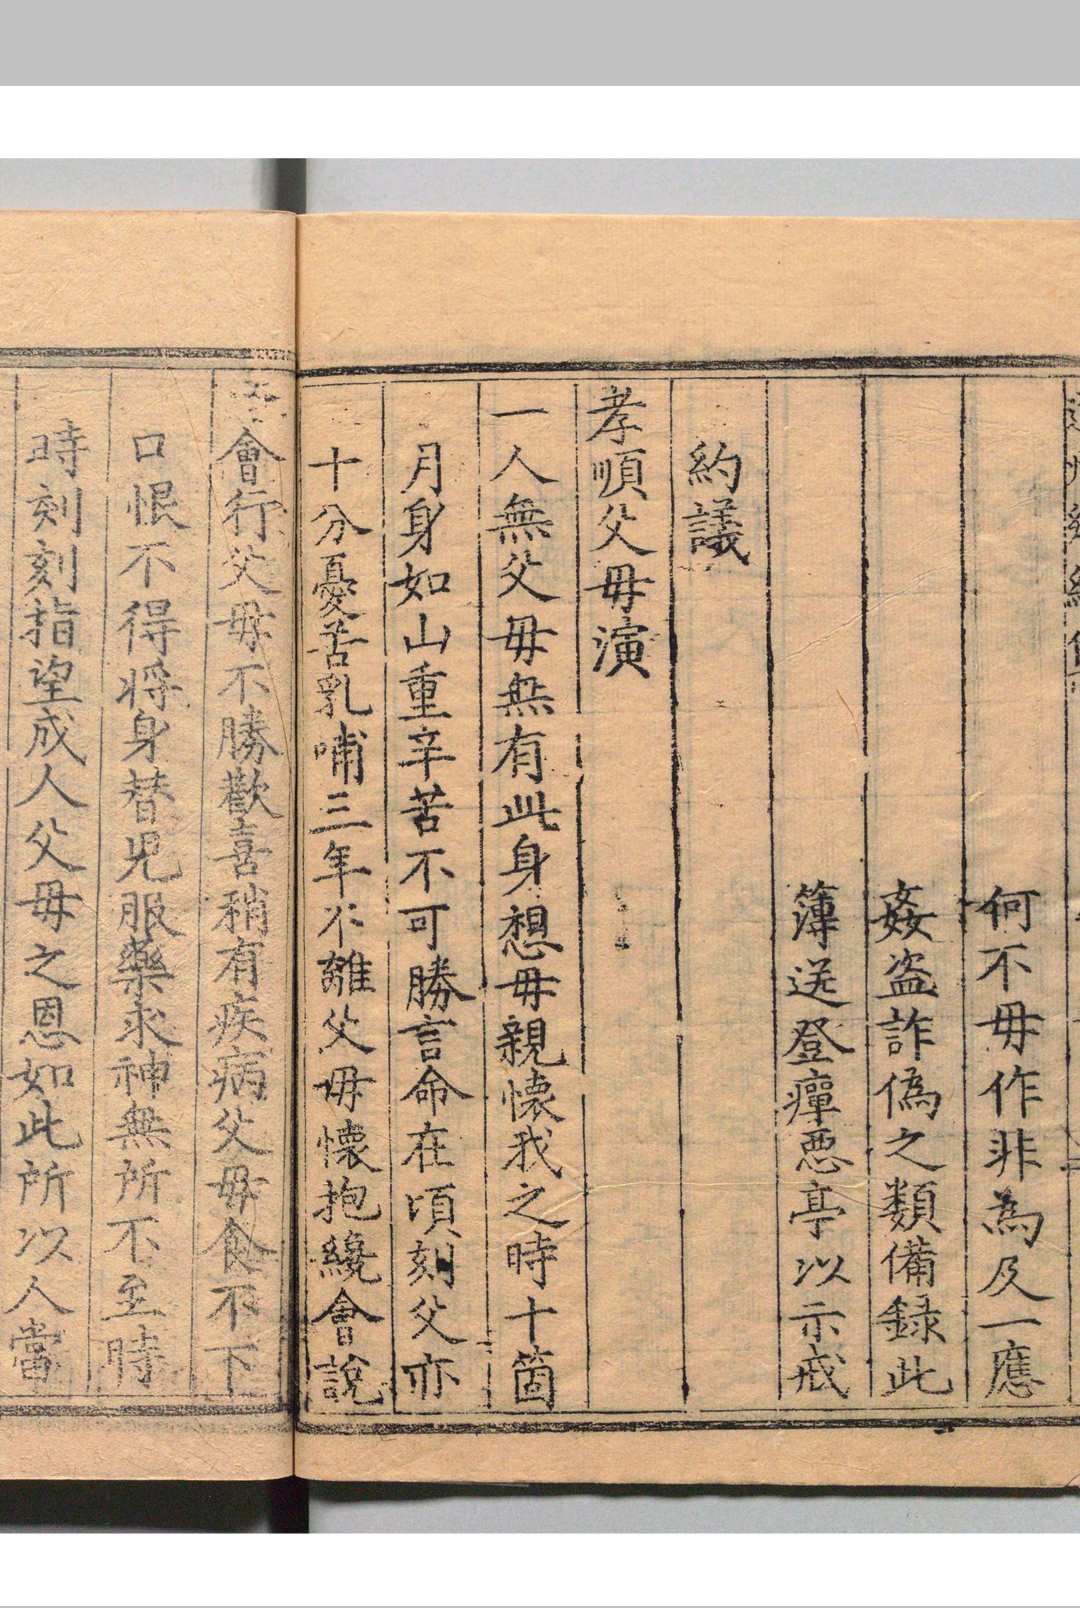 何不毋作非為及一應
姦盗詐偽之類備録此
簿送登癉惡亭以示戒
約議
孝順父毋演
一人無父毋無有此身想毋親懷我之時十箇
月身如山重辛苦不可勝言命在頃刻父亦
十分憂苦乳哺三年不離父毋懷抱纔會說
會行父毋不勝歡喜稍有疾病父毋食不下
口恨不得將身替兒服藥求神無所不至時
時刻刻指望成人父毋之恩如此所以人當